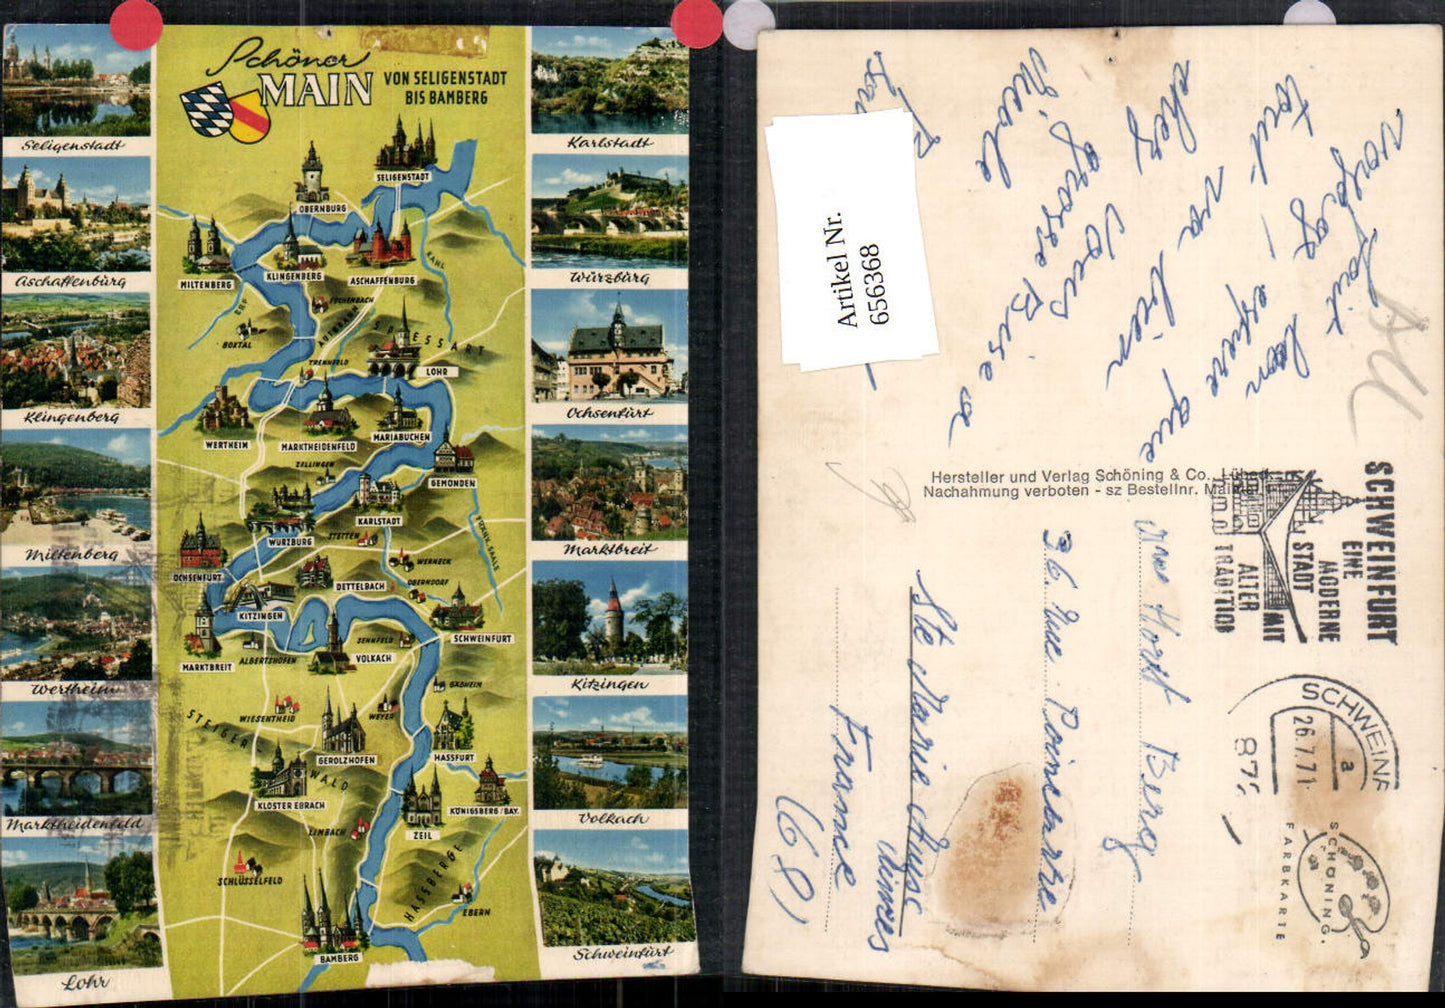 Schöner
MAIN
VON SELIGENSTADT
BIS BAMBERG
Seligenstadt
Aschaffenburg
Klingenberg
Miltenberg
Wertheim
Marktheidenfeld
Lohr
Karlstadt
Würzburg
Ochsenfurt
Marktbreit
Kitzingen
Volkach
Schweinfurt
SELIGENSTADT
OBERNBURG
MILTENBERG
KLINGENBERG
ASCHAFFENBURG
KAHL
ERF
ESCHENBACH
BOXTAL
SPESSART
TRENNFELD
LOHR
WERTHEIM
MARKTHEIDENFELD
MARIABUCHEN
ZELLINGEN
GEMÜNDEN
KARLSTADT
WÜRZBURG
STETTEN
FRÄNK. SAALE
OCHSENFURT
WERNECK
DETTELBACH
OBERNDORF
KITZINGEN
SCHWEINFURT
MARKTBREIT
ALBERTSHOFEN
VOLKACH
SENNFELD
GÄDHEIM
WIESENTHEID
WEYER
STEIGERWALD
GEROLZHOFEN
HASSFURT
KLOSTER EBRACH
KÖNIGSBERG/BAY.
ZEIL
LIMBACH
SCHLÜSSELFELD
HASSBERGE
EBERN
BAMBERG
Artikel Nr.
656368
voyage fait bon
tout! espere que
chez vous va bien
grosse Bise a
Nicole
Hersteller und Verlag Schöning & Co., Lübeck
Nachahmung verboten - sz Bestellnr. Main
SCHWEINFURT
EINE
MODERNE
STADT
MIT
ALTER
TRADITION
SCHWEINF
26.7.71
a
872
SCHÖNING.
FARBKARTE
Mme Horst Berg
36. Rue. Poincarre
Ste Marie Aux
Mines
France
(68)